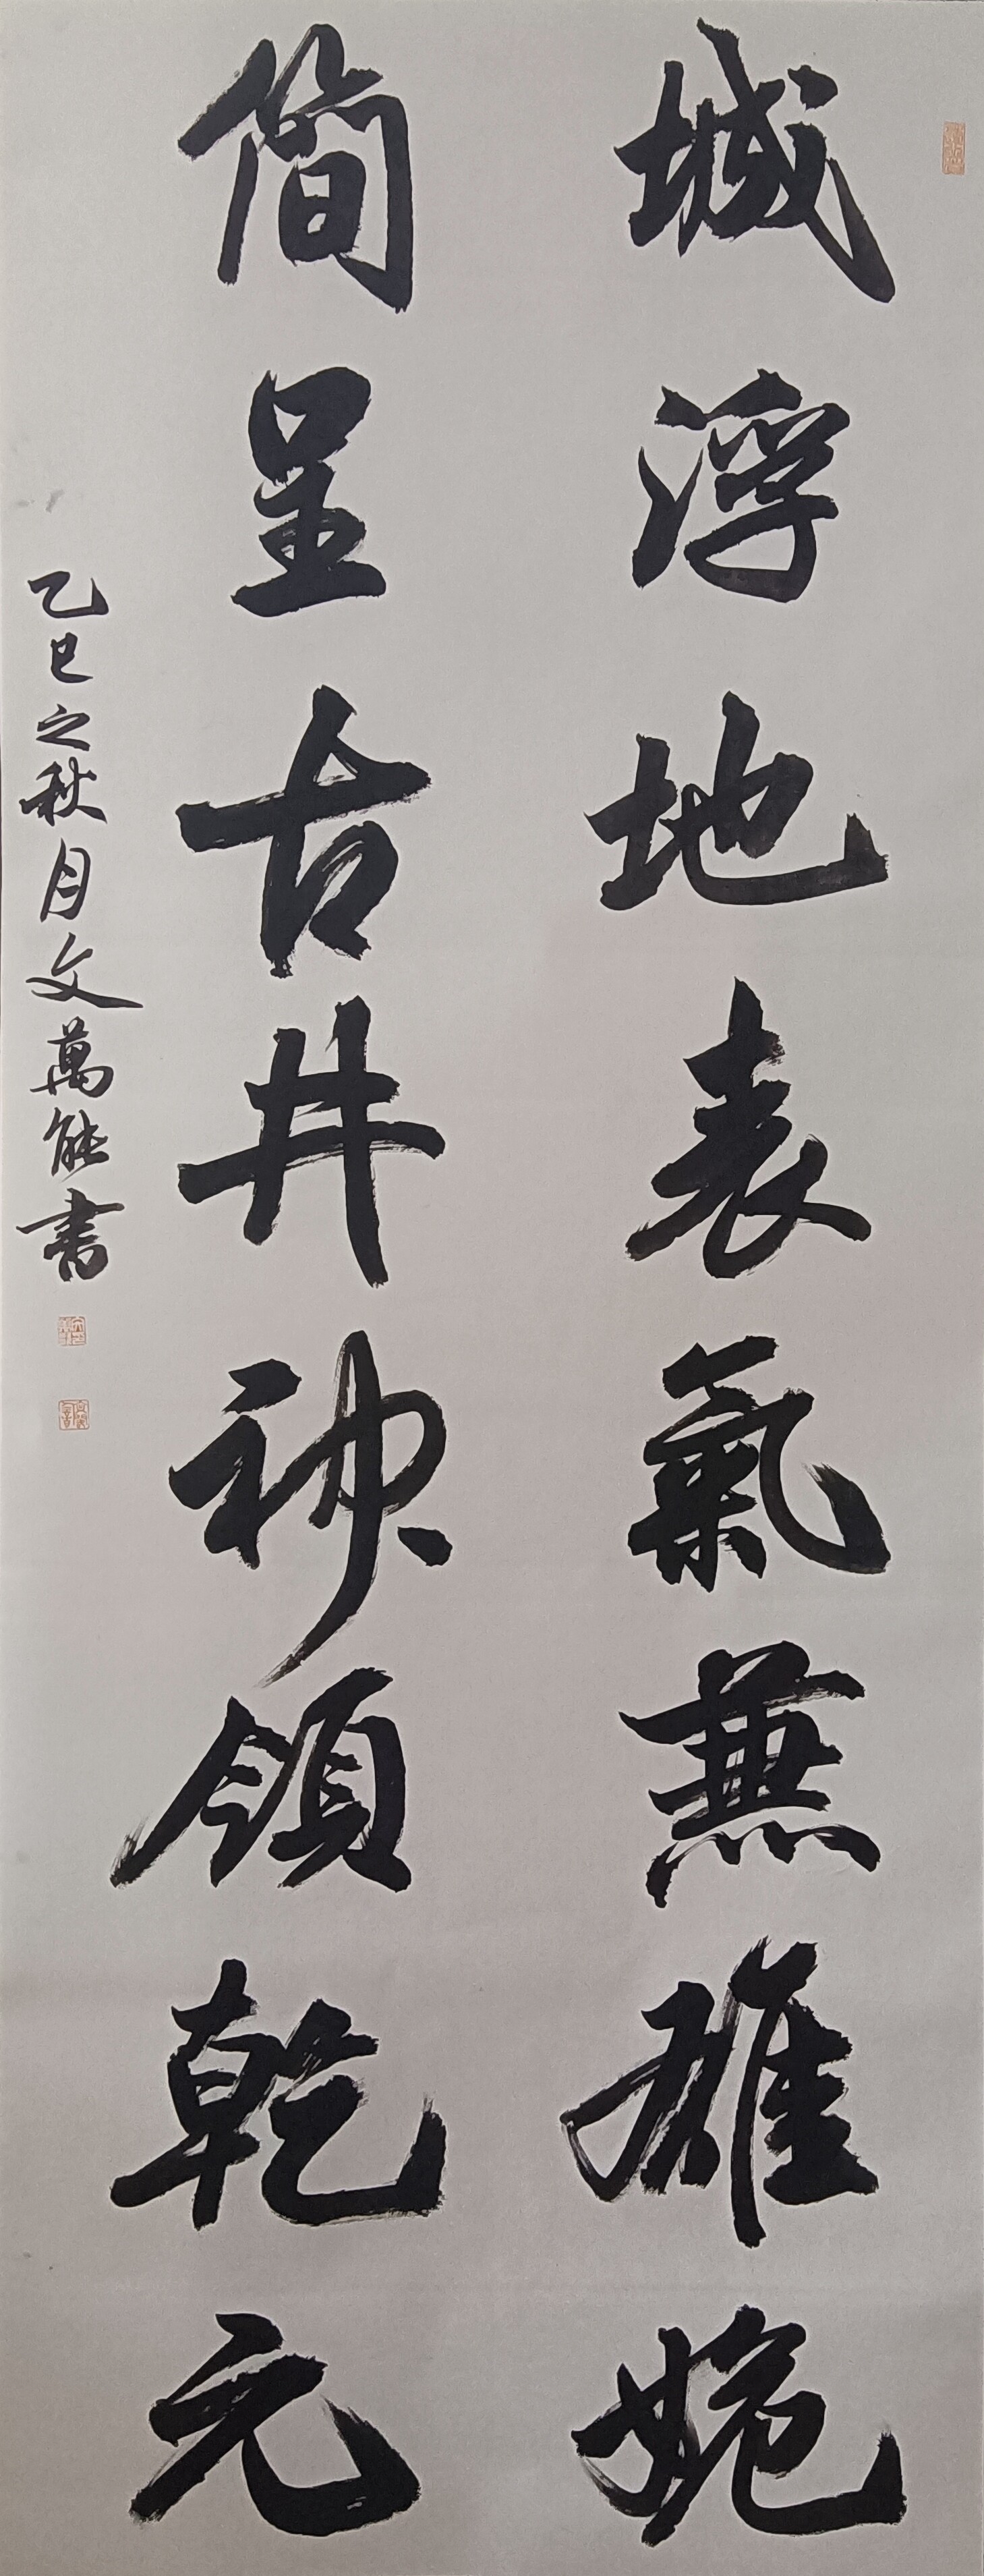 城浮地表氣兼雄婉
簡呈古井神領乾元
乙巳之秋月文萬能书